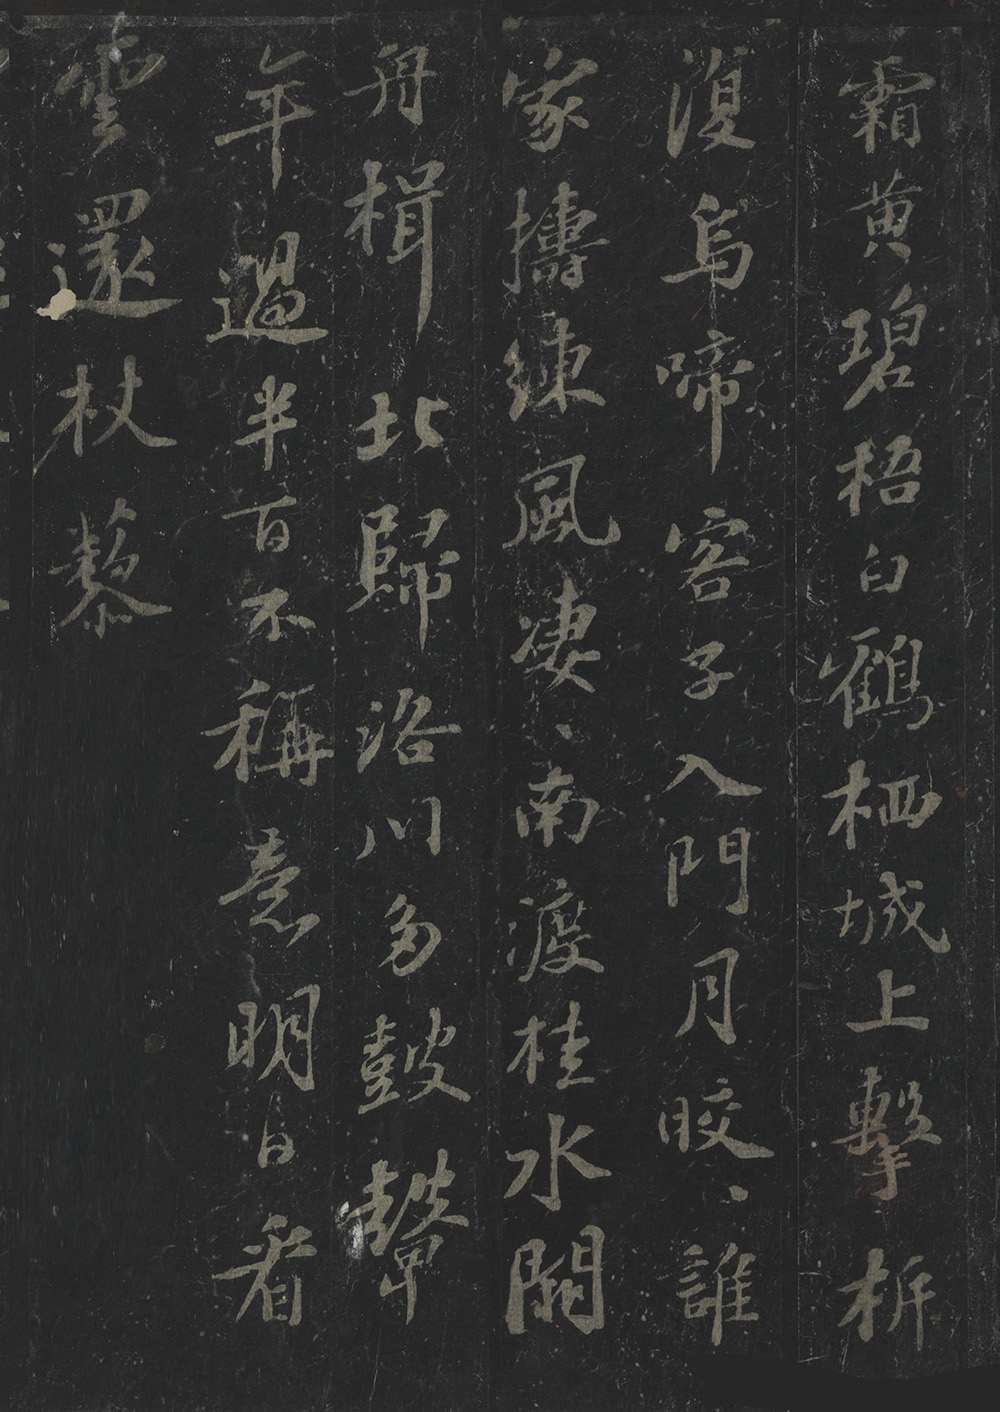 霜黄碧梧白鶴栖城上擊柝
復烏啼客子入門月皎、誰
家擣練風凄、南渡桂水闕
舟楫北歸洛川多鼓鼙
年過半百不稱意明日看
雲還杖藜